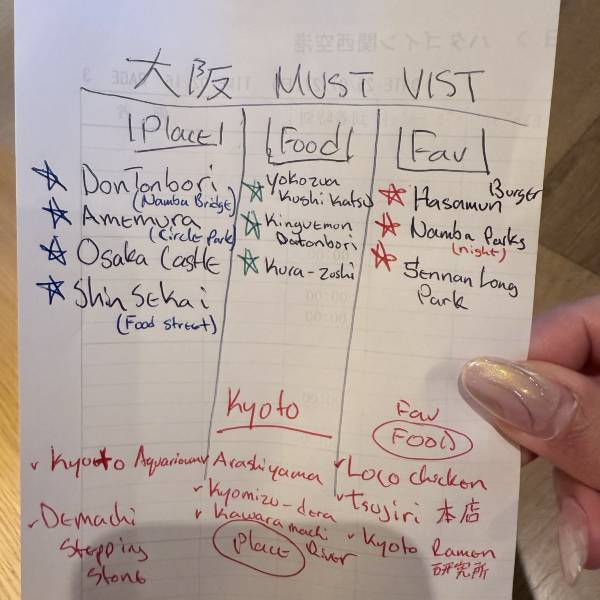 大阪 MUST VIST
Place
DonTonbori
(Namba Bridge)
Amemura
(Circle Park)
Osaka Castle
Shin Sekai
(Food Street)
Food
Yokozuna
Kushi Katsu
Kinguemon
Dotonbori
Kura-zoshi
Fav
Hasamun Burger
Namba Parks
(night)
Sennan Long
Park
Kyoto
Kyoto Aquarium
Demachi
Stepping
Stone
Arashiyama
Kyomizu-dera
Kawaramachi
River
Place
Fav
Food
Loco chicken
Tsujiri 本店
Kyoto Ramen
研究所